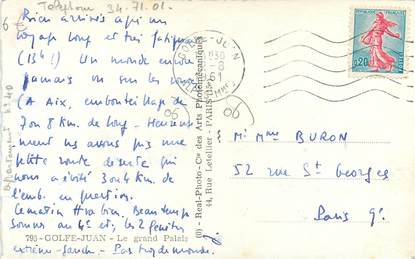 Telephone 34.71.01.
Bien arrivés après un
voyage long et très fatigant
(13h!) Un monde encore
jamais vu sur les routes
(A Aix, embouteillage de
7 ou 8 km de long - Heureuse
ment ns avons pris une
petite route déserte qui
nous a évité 3 ou 4 km de
l'emb. en question.
Ce matin tt va bien. Beau temps
sommes au 4e et, les 2 fenêtres
793 - GOLFE-JUAN - Le grand Palais
extrême-gauche - Pas trop de monde.
appartement n° 40
(0) - Real-Photo - Cie des Arts Photomécaniques
44, Rue Letellier - PARIS-15e
GOLFE-JUAN
1961
ALPES MMES
REPUBLIQUE FRANÇAISE
0,20
POSTES
06
06
6 €
M. Mme BURON
52 rue St Georges
Paris 9e